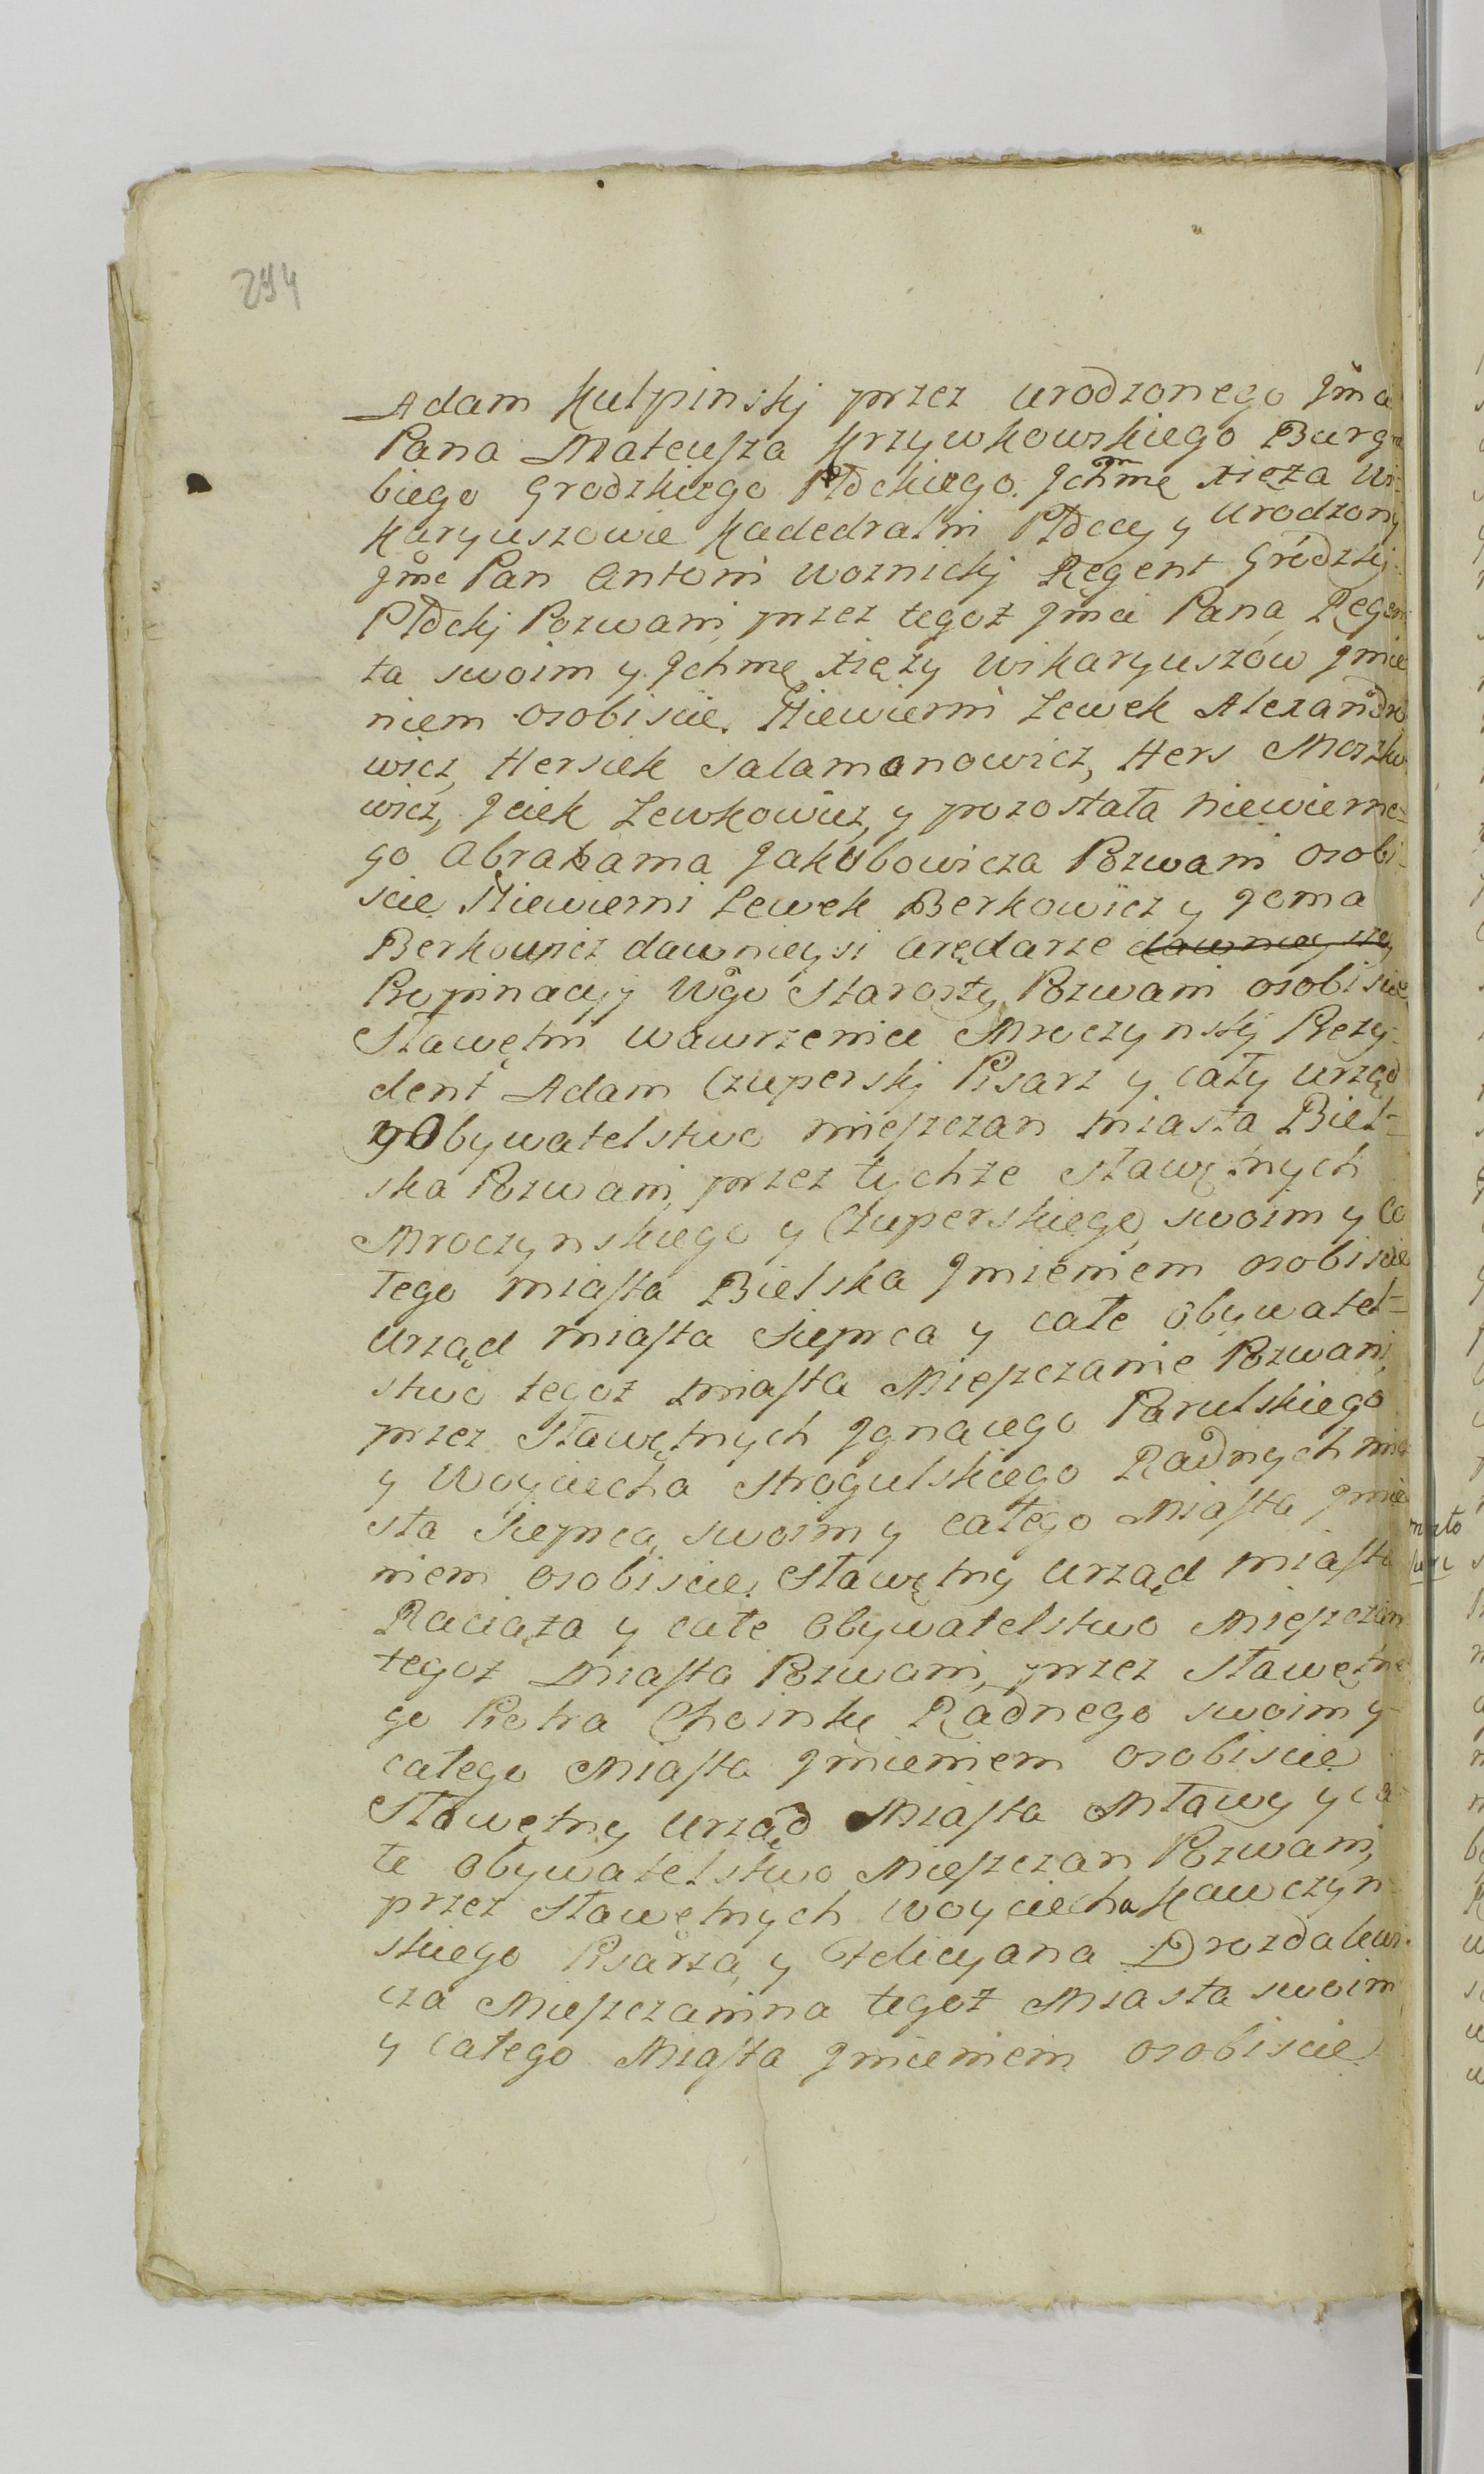 294
Adam Kulpinskj przez urodzonego Jmci
Pana Mateusza Krzywkowskiego Burgra
biego Grodzkiego Płdckiego. Jchmę xięża Wi-
karyuszowie Kadedralni Płdccy y Urodzony
Jmc Pan Antoni Woznickj Regent Grodzkj
Płdckj Pozwani, przez tegoż Jmci Pana Regen
ta swoim y Jchmę xięży Wikaryuszów Jmie
niem osobiscie. Niewierni Lewek Alexandro
wicz, Hersiek Salamonowicz, Hers Moszko
wicz, Jciek Lewkowicz, y pozostała niewierne-
go Abrahama Jakubowicza Pozwani osobi-
scie Niewierni Lewek Berkowicz y Joma
Berkowicz dawnieysi Arędarze dawnieyszey
Propinacyy Wgo Starosty Pozwani osobiscie
Sławętni Wawrzeniec Mroczynskj Prezy-
dent Adam Czuperskj Pisarz y cały Urząd
y Obywatelstwo mieszczan miasta Biel-
ska Pozwani, przez tychże Sławętnych
Mroczynskiego y Czuperskiego swoim y Ca
łego miasta Bielska Jmieniem osobiscie
Urząd miasta Sieprca y całe obywatel-
stwo tegoż miasta Mieszczanie Pozwani,
przez Sławętnych Jgnacego Parulskiego
y Woyciecha Strogulskiego Radnych mia
sta Sieprca, swoim y całego Miasta Jmie
niem osobiscie. Sławętny Urząd miasta
Raciąża y całe Obywatelstwo Mieszczan
tegoż Miasta Pozwani, przez Sławętne
go Piotra Choinkę Radnego swoim y
całego Miasta Jmieniem osobiscie
Sławętny Urząd Miasta Mławy y ca
łe obywatelstwo Mieszczan Pozwani,
przez Sławętnych Woyciecha Kawczyn-
skiego Pisarza, y Felicyana Drozdalewi-
cza Mieszczanina tegoż Miasta swoim
y całego Miasta Jmieniem osobiscie